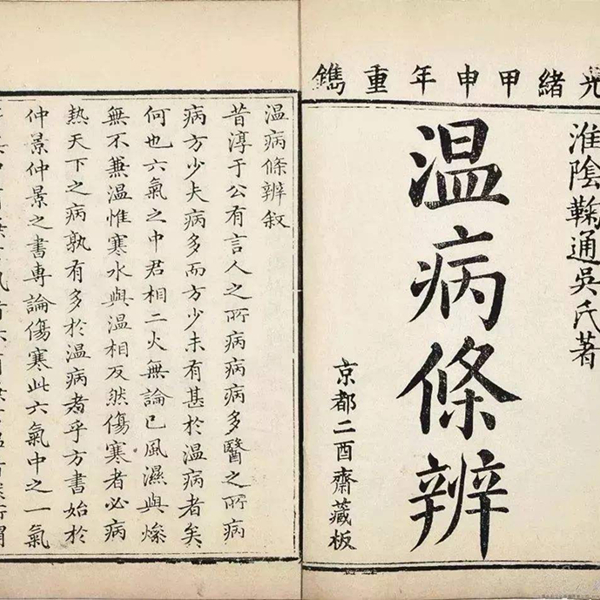 光緒甲申年重鐫
淮陰鞠通吳氏著
温病條辨
京都二酉齋藏板
温病條辨叙
昔淳于公有言人之所病病病多醫之所病
病方少夫病多而方少未有甚於温病者矣
何也六氣之中君相二火無論已風濕與燥
無不兼温惟寒水與温相反然傷寒者必病
熱天下之病孰有多於温病者乎方書始於
仲景仲景之書專論傷寒此六氣中之一氣